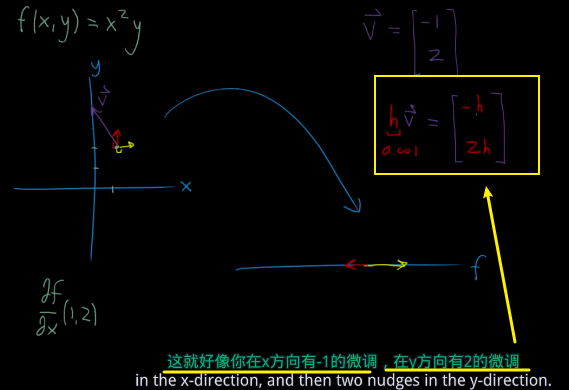 f(x,y) = x²y
v⃗ = [-1 2]
y
v⃗
hv⃗ = [-h 2h]
0.001
x
f
∂f/∂x (1,2)
这就好像你在x方向有-1的微调，在y方向有2的微调
in the x-direction, and then two nudges in the y-direction.